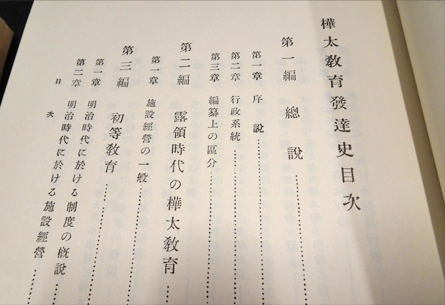 樺太教育發達史目次
第一編 總說
第一章 序說
第二章 行政系統
第三章 編纂上の區分
第二編 露領時代の樺太教育
第一章 施設經營の一般
第三編 初等教育
第一章 明治時代に於ける制度の概說
第二章 明治時代に於ける施設經營
目次